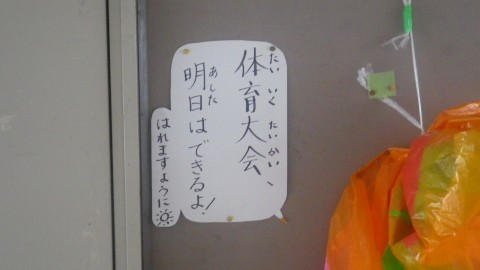 体育大会、
たいいくたいかい
明日はできるよ!
あした
はれますように